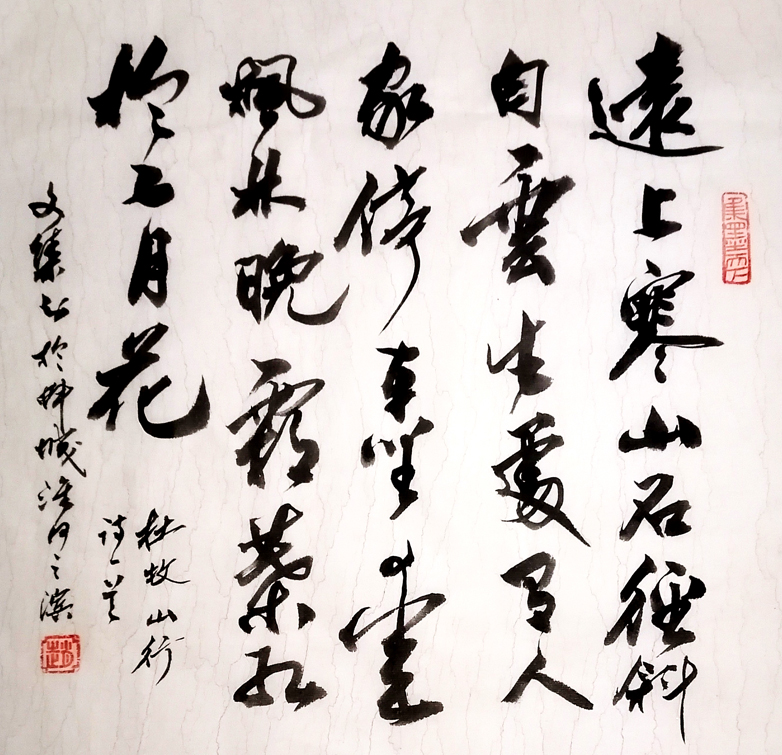 遠上寒山石徑斜
白雲生處有人
家停車坐愛
楓林晚霜葉紅
於二月花
杜牧山行
诗一首
文集书於蚌城淮河之滨